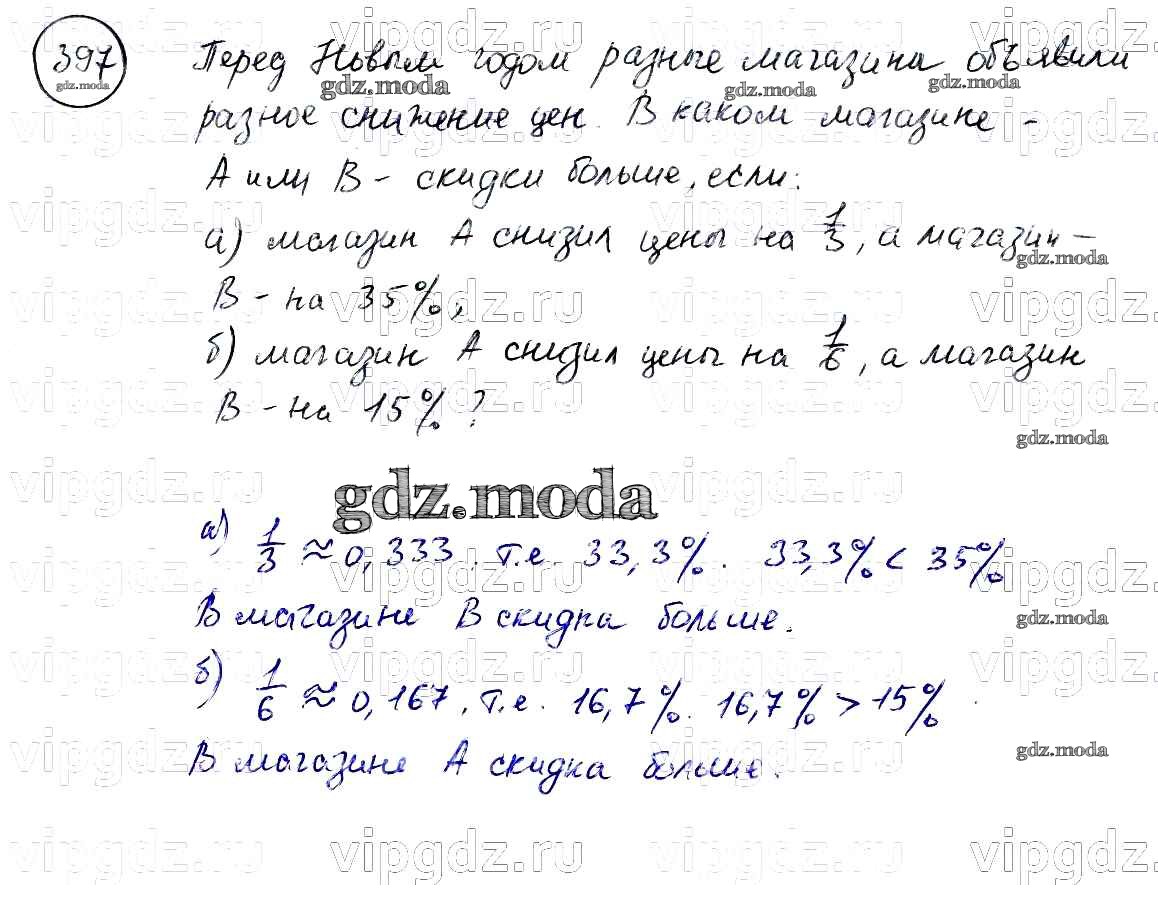 397
Перед Новым годом разные магазина объявили
разное снижение цен. В каком магазине -
А или В - скидки больше, если:
а) магазин А снизил цены на 1/3, а магазин -
В - на 35%,
б) магазин А снизил цены на 1/6, а магазин
В - на 15%?
gdz.moda
а) 1/3 ≈ 0,333. т.е. 33,3%. 33,3% < 35%
В магазине В скидка больше.
б) 1/6 ≈ 0,167. т.е. 16,7%. 16,7% > 15%
В магазине А скидка больше.
vipgdz.ru